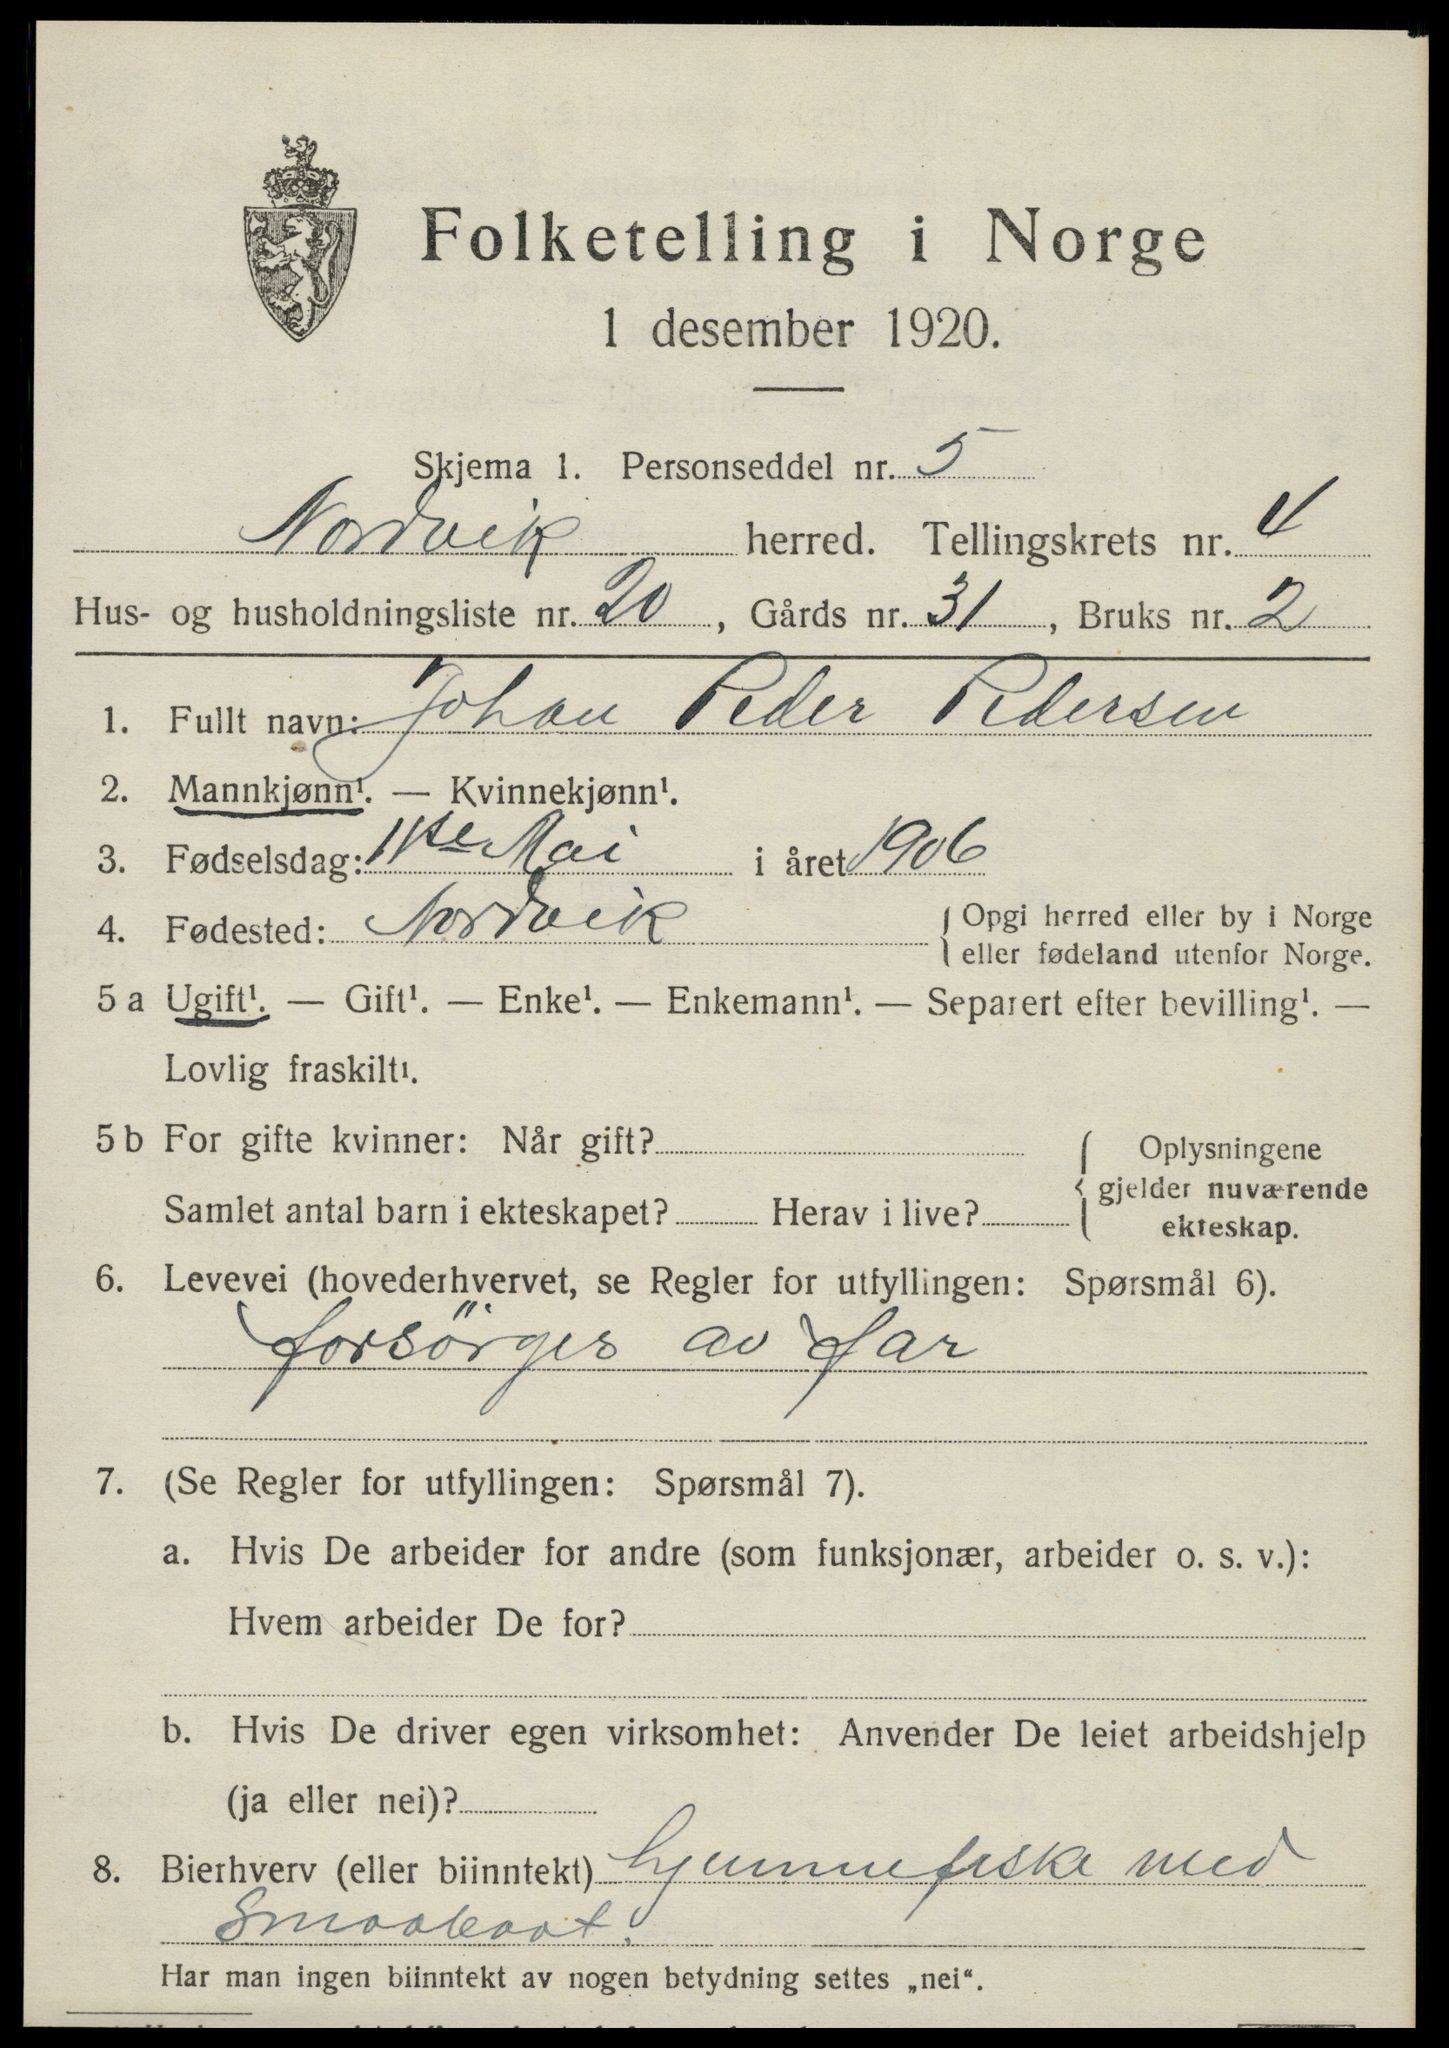 Folketelling i Norge
1 desember 1920.
Skjema 1. Personseddel nr. 5
Nordvik herred. Tellingskrets nr. 4
Hus- og husholdningsliste nr. 20, Gårds nr. 31, Bruks nr. 2
1. Fullt navn: Johan Peder Pedersen
2. Mannkjønn¹. — Kvinnekjønn¹.
3. Fødselsdag: 11te Mai i året 1906
4. Fødested: Nordvik { Opgi herred eller by i Norge
eller fødeland utenfor Norge.
5 a Ugift¹. — Gift¹. — Enke¹. — Enkemann¹. — Separert efter bevilling¹. —
Lovlig fraskilt¹.
5 b For gifte kvinner: Når gift? { Oplysningene
gjelder nuværende
Samlet antal barn i ekteskapet? Herav i live? ekteskap.
6. Levevei (hovederhvervet, se Regler for utfyllingen: Spørsmål 6).
forsörges av far
7. (Se Regler for utfyllingen: Spørsmål 7).
a. Hvis De arbeider for andre (som funksjonær, arbeider o. s. v.):
Hvem arbeider De for?
b. Hvis De driver egen virksomhet: Anvender De leiet arbeidshjelp
(ja eller nei)?
8. Bierhverv (eller biinntekt) hjemmefiske med
Smaabaat.
Har man ingen biinntekt av nogen betydning settes „nei“.